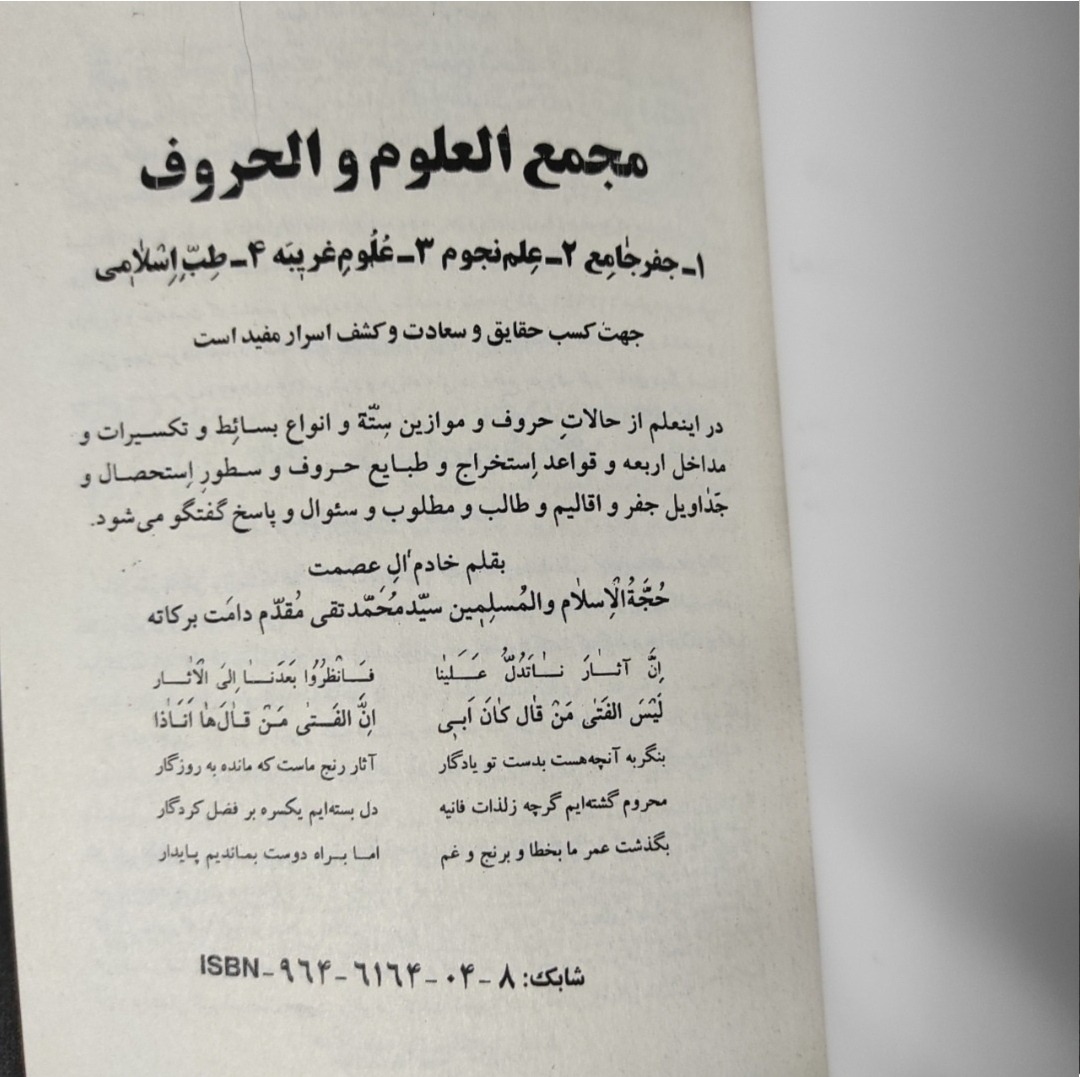 مجمع العلوم و الحروف
۱ـ جفر جامِع ۲ـ عِلم نجوم ۳ـ عُلُومِ غریبَه ۴ـ طِبِّ اِسْلامی
جهت کسب حقایق و سعادت و کشف اسرار مفید است
در اینعلم از حالاتِ حروف و موازین سِتّة و انواع بسائط و تکسیرات و
مداخل اربعه و قواعد اِستخراج و طبایع حروف و سطورِ اِستحصال و
جَداویل جفر و اقالیم و طالب و مطلوب و سئوال و پاسخ گفتگو می‌شود.
بقلم خادم آلِ عصمت
حُجَّةُ الْاِسلام والمُسلِمین سیّد مُحَمَّد تقی مُقدّم دامَت برکاته
اِنَّ آثارَ ناتَدُلُّ عَلَینا فَانْظُرُوا بَعَدَنا اِلیَ الْاثار
لَیْسَ الفَتٰی مَنْ قال کانَ اَبی اِنَّ الفَتٰی مَنْ قالَ ها اَنَاذا
بنگر به آنچه هست بدست تو یادگار آثار رنج ماست که مانده به روزگار
محروم گشته‌ایم گرچه زلذات فانیه دل بسته‌ایم یکسره بر فضل کردگار
بگذشت عمر ما بخطا و برنج و غم اما براه دوست بماندیم پایدار
شابک: ۸ - ۰۴ - ۶۱۶۴ - ۹۶۴ - ISBN